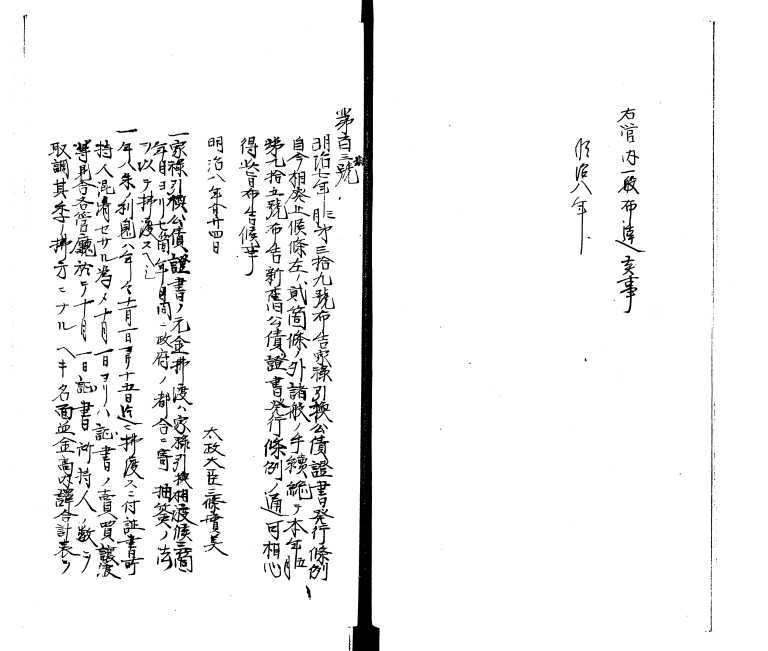 右管内一般布達候事
明治八年
第百三號
明治七年 月第三拾九號布告家祿引換公債證書発行條例
自今相廃止候條左ノ貳箇條ノ外諸般ノ手續総テ本年五月
第七拾五號布告新舊公債證書発行條例ノ通可相心
得此旨布告候事
明治八年 月廿四日
太政大臣三條實美
一家祿引換公債證書ノ元金拂渡ハ家祿引換相渡候 箇
年目ヨリ七箇年目間ニ政府ノ都合ニ寄抽籤ノ法
ヲ以テ拂渡スヘシ
一年八朱ノ利息ハ年々十一月一日ヨリ十五日迄ニ拂渡スニ付証書
持人混淆セサル為メ十月一日ヨリハ証書ノ賣買讓渡
等見合各管廳於テ十月一日証書所持人ノ数ヲ
取調其季ノ拂方ニナルヘキ名面並金高内譯合計表ヲ